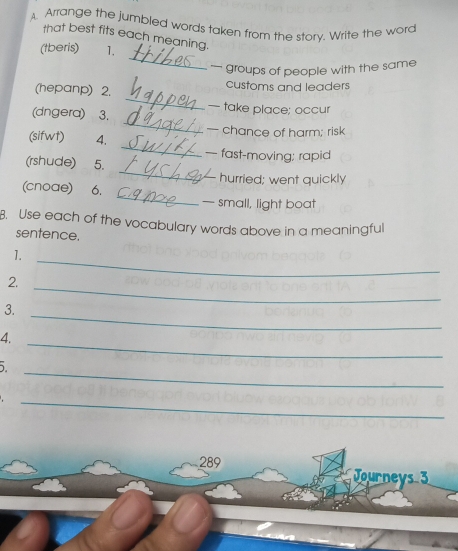 A. Arrange the jumbled words taken from the story. Write the word
that best fits each meaning.
(tberis) 1. tribes — groups of people with the same
customs and leaders
(hepanp) 2. happen — take place; occur
(dngera) 3. danger — chance of harm; risk
(sifwt) 4. swift — fast-moving; rapid
(rshude) 5. — hurried; went quickly
(cnoae) 6. — small, light boat
B. Use each of the vocabulary words above in a meaningful
sentence.
1.
2.
3.
4.
5.
289
Journeys 3